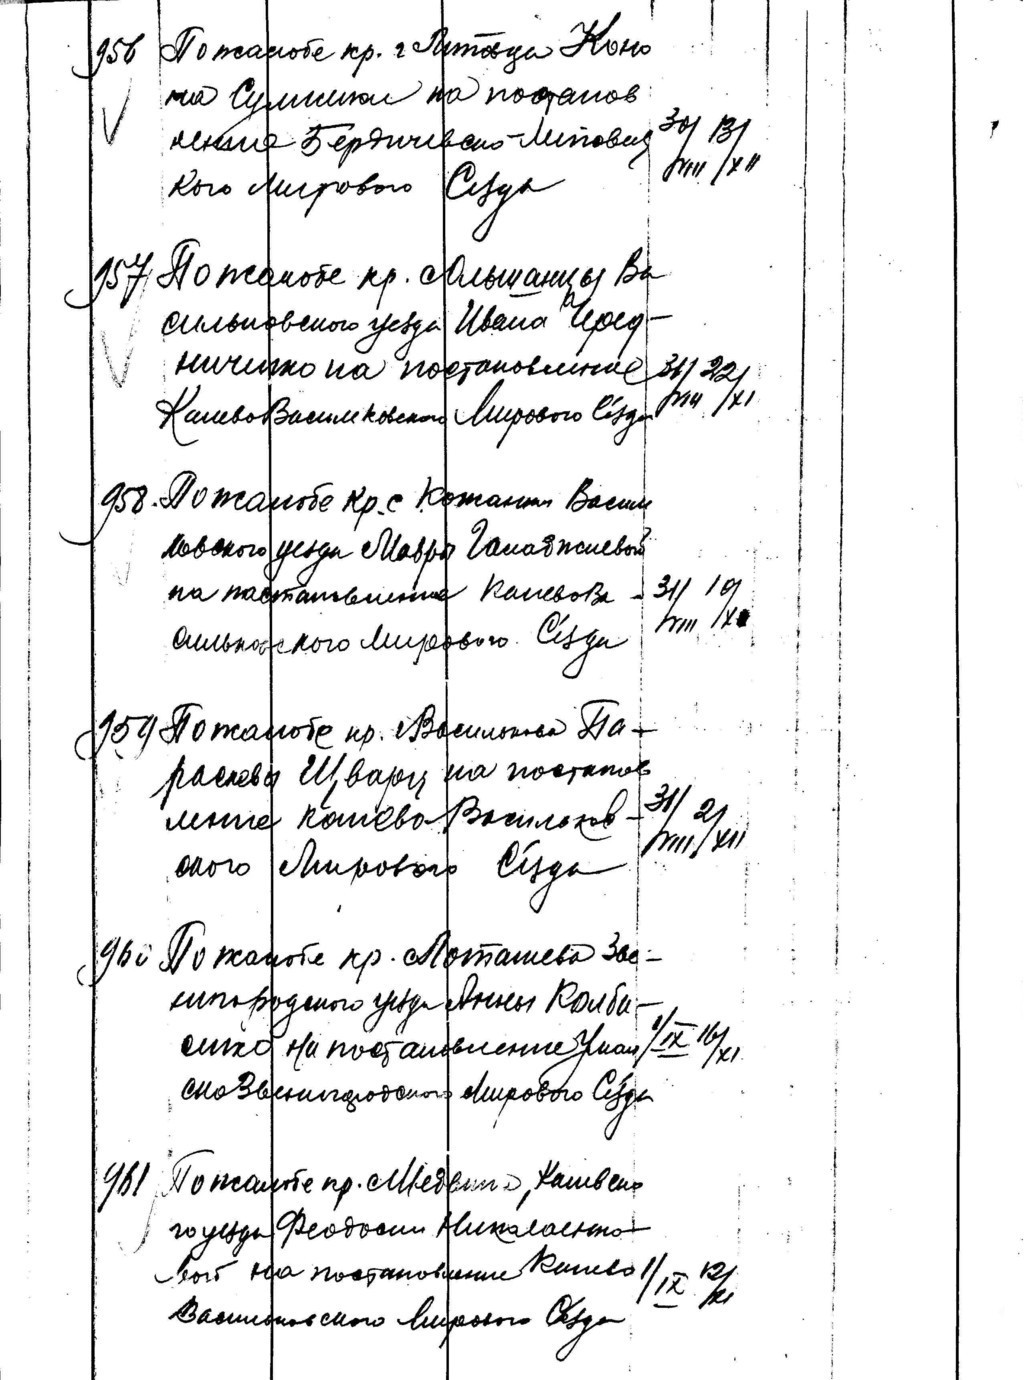 956 По жалобе кр. г Литовца Коно
на Сулимы на постанов
ление Бердичевско-Липовец
кого Мирового Сѣзда 30/VIII 13/XII
957 По жалобе кр. с Ольшаницы Ва
сильковского уезда Ивана Черед-
ниченко на постановление 31/VIII 22/XI
Канево Васильковского Мирового Сѣзда
958. По жалобе кр. с Кожанки Василь
ковского уезда Мавры
на постановление Канево Ва- 31/VIII 19/XI
сильковского Мирового Сѣзда
959 По жалобе кр. г Василькова Па-
раскевы Шварц на постанов
ление Канево Васильков- 31/VIII 2/XII
ского Мирового Сѣзда
960 По жалобе кр. с Моташева Зве-
нигородского уезда Анны Колба-
сенко на постановление Уман 1/IX 16/XI
ско Звенигородского Мирового Сѣзда
961 По жалобе кр. с Медвина, Каневско
го уезда Феодосии Николаенко-
вой на постановление Канево 1/IX 12/XI
Васильковского Мирового Сѣзда